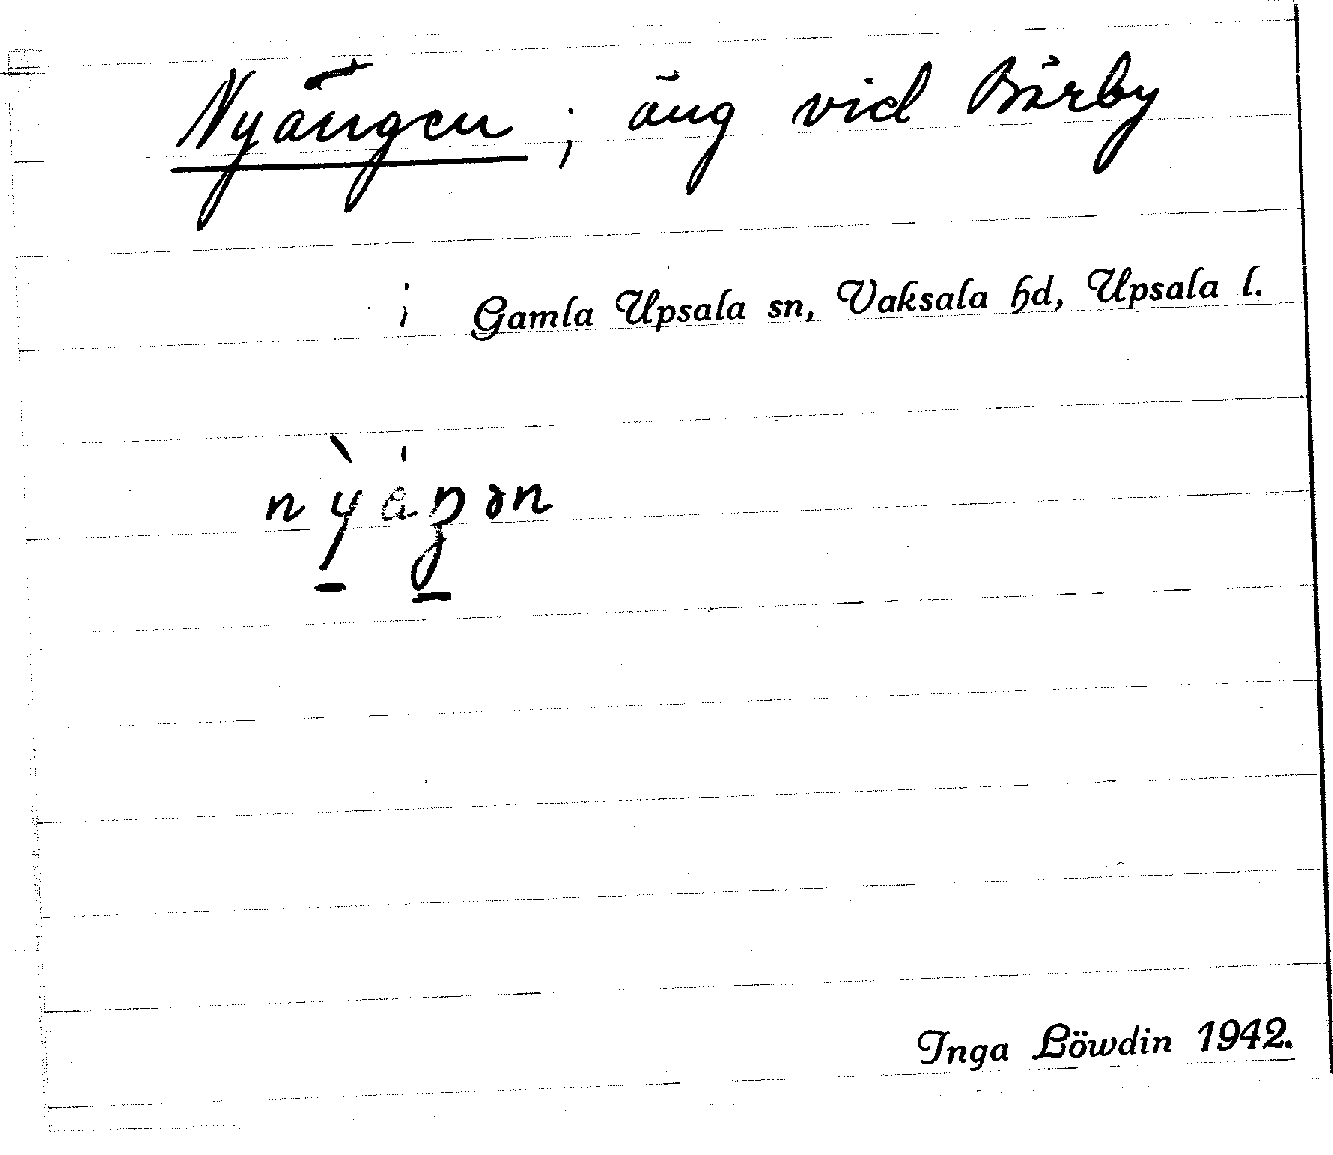 Nyängen ; äng vid Bärby
i Gamla Upsala sn, Vaksala hd, Upsala l.
Inga Löwdin 1942.